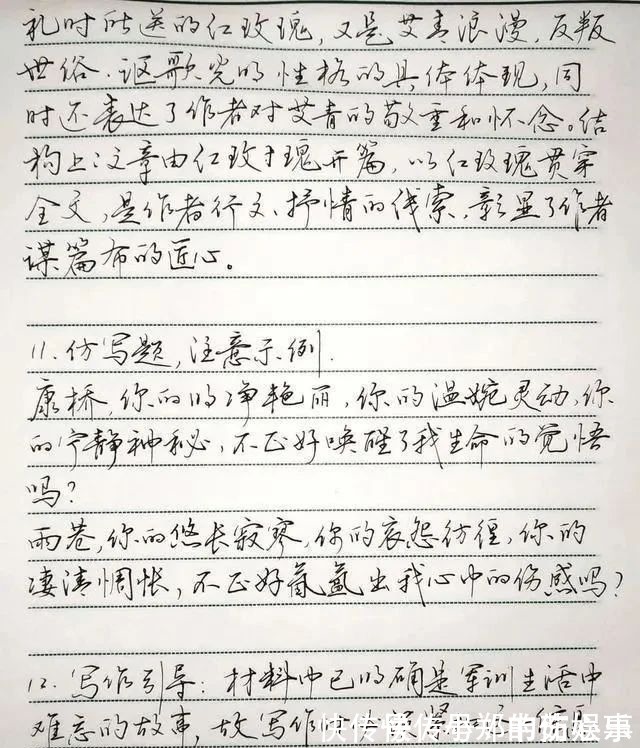 礼时所送的红玫瑰，又是艾青浪漫，反叛
世俗、讴歌光明性格的具体体现，同
时还表达了作者对艾青的敬重和怀念。结
构上：文章由红玫瑰开篇，以红玫瑰贯穿
全文，是作者行文、抒情的线索，彰显了作者
谋篇布的匠心。
11.仿写题，注意示例.
康桥，你的明净艳丽，你的温婉灵动，你
的宁静神秘，不正好唤醒了我生命的觉悟
吗？
雨巷，你的悠长寂寥，你的哀怨彷徨，你的
凄清惆怅，不正好氤氲出我心中的伤感吗？
12.写作引导：材料中已明确是军训生活中
难忘的故事，故写作
快传